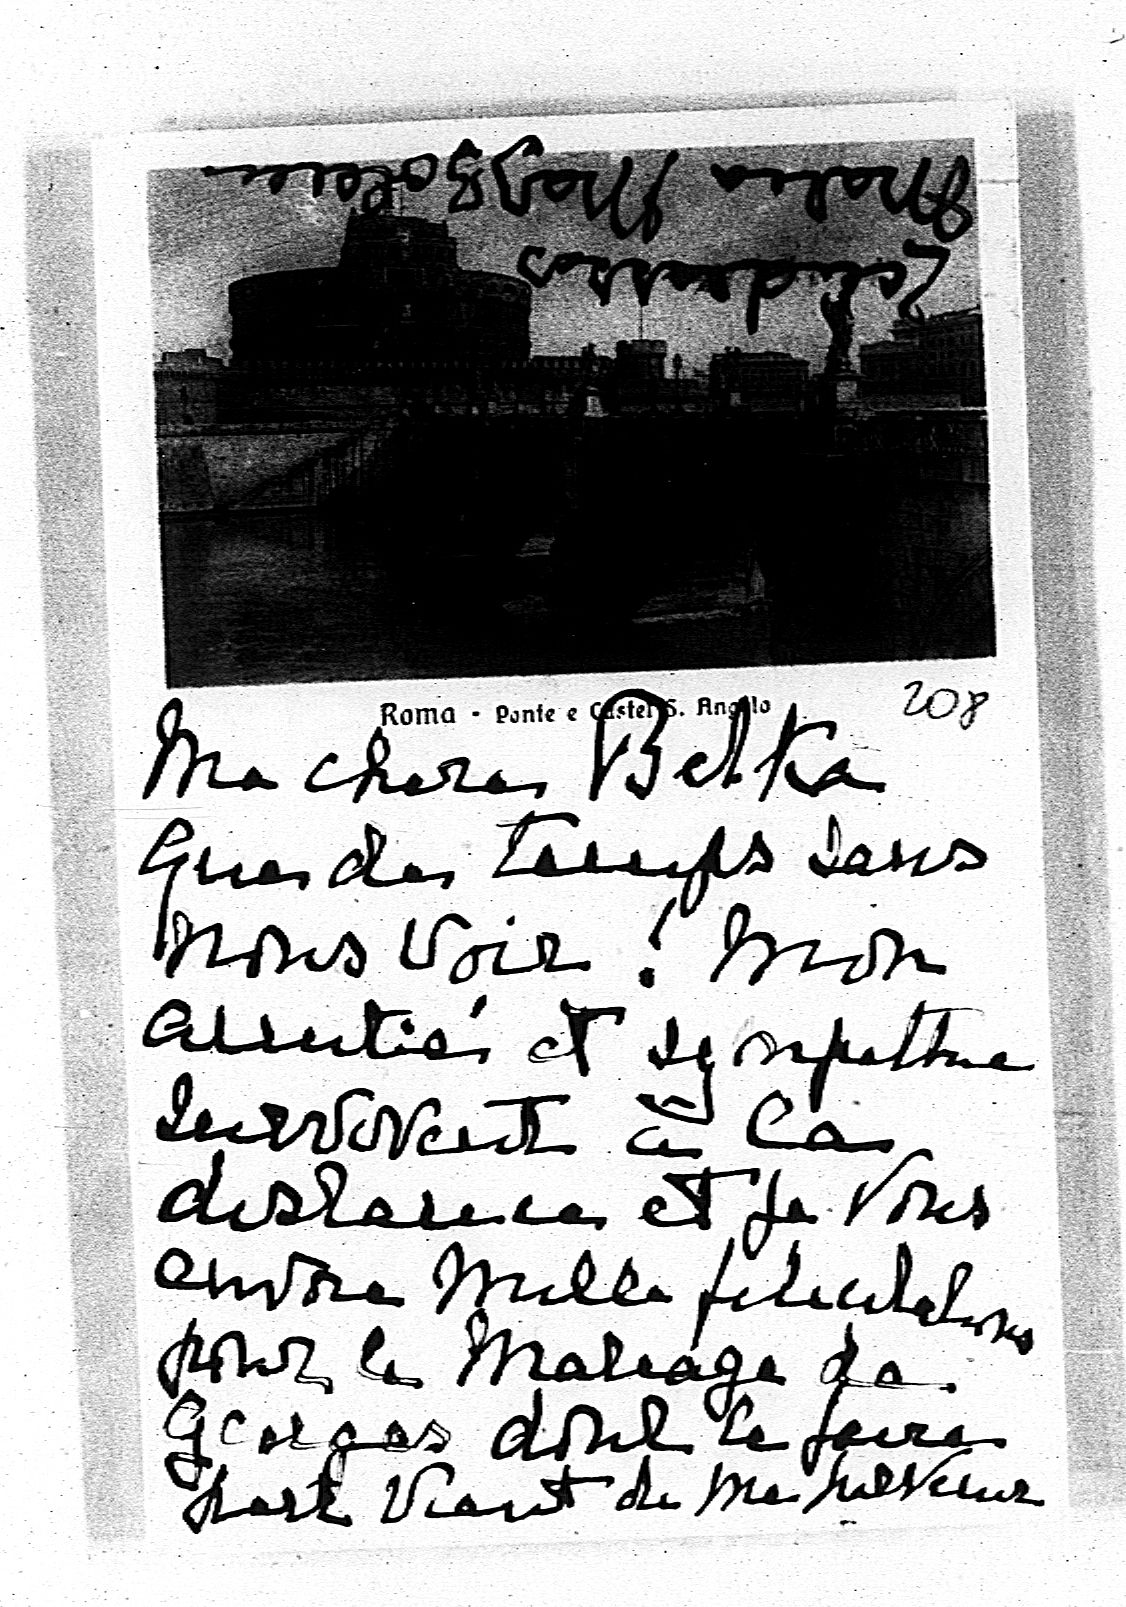 Maria Mazzoleni
Roma - Ponte e Castel S. Angelo
208
Ma chere Betka
Que de temps sans
nous voir ! Mon
amitié et sympathie
survivent à la
distance et je vous
envoie mille felicitations
pour le mariage de
Georges dont le faire
part vient de me parvenir